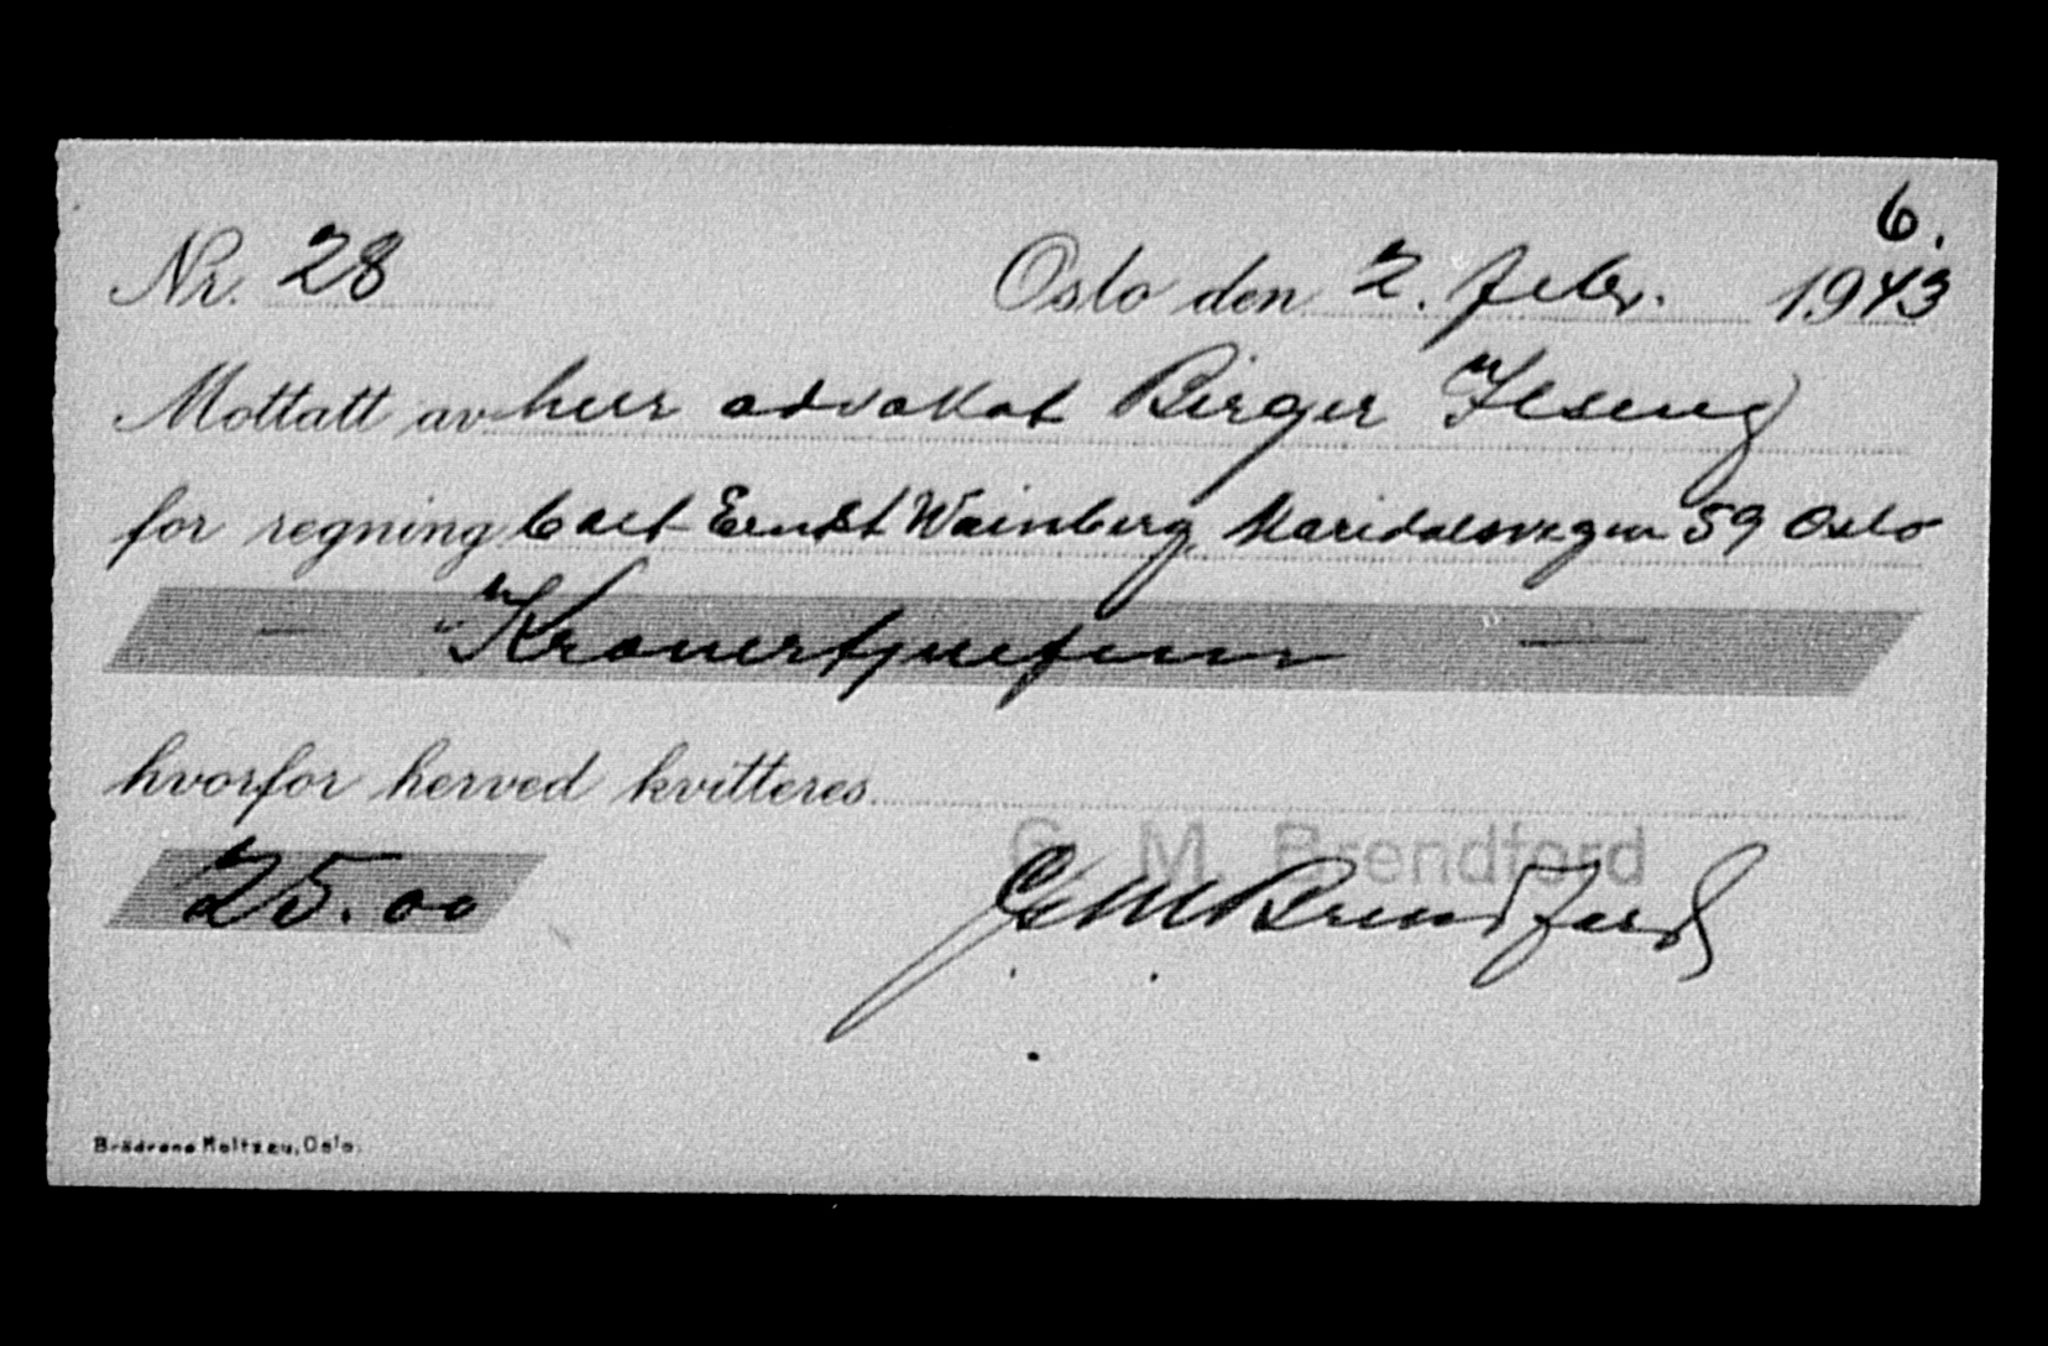 6.
Nr. 28 Oslo den 2. febr. 1943
Mottatt av herr advokat Birger Ilseng
for regning boet Ernst Wainberg, Maridalsvegen 59 Oslo
— Kronertjuefem —
hvorfor herved kvitteres
G. M. Brendford
25.00 G M Brendford
Brödrene Moltzau, Oslo.